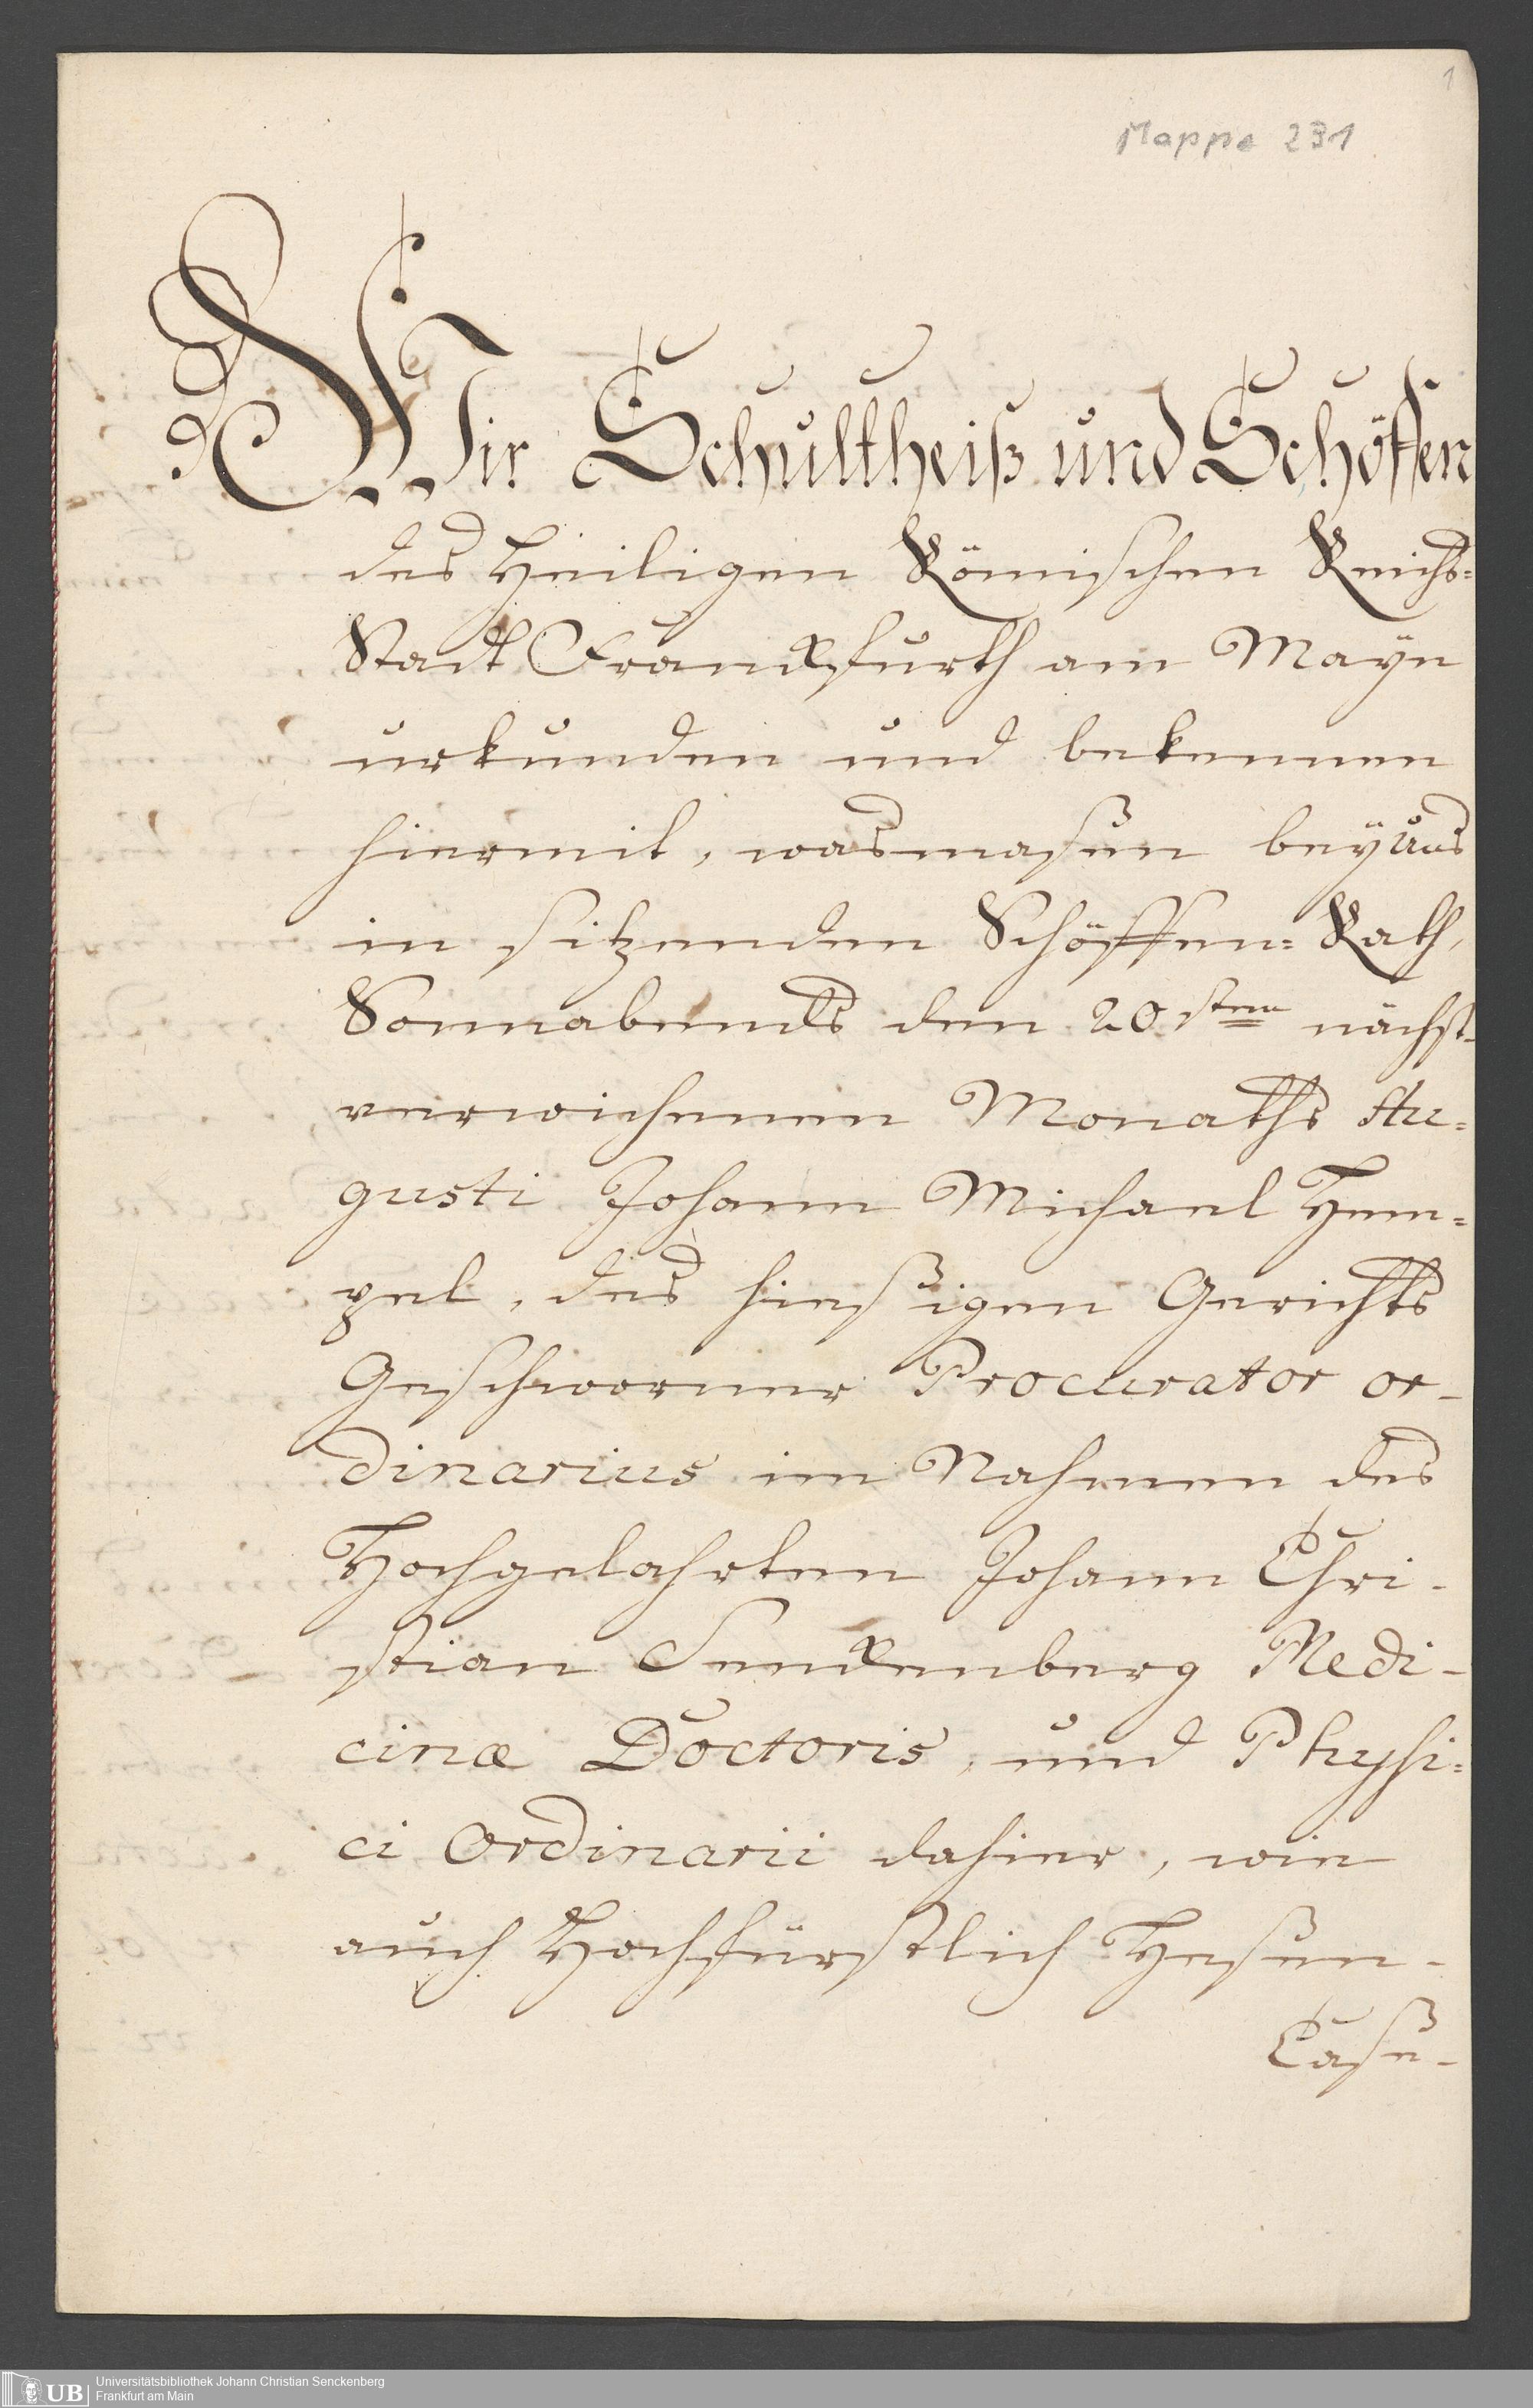 1
Mappe 231
Wir Schultheiß und Schöffen
des Heiligen Römischen Reichs=
Stadt Franckfurth am Mayn
urkunden und bekennen
hiermit, wasmaßen bey Uns
in sitzenden Schöffen=Rath,
Sonnabends den 20sten nächst-
verwichenen Monaths Au=
gusti Johann Michael Hem=
pel, des hießigen Gerichts
Geschworner Procurator or-
dinarius im Nahmen des
Hochgelahrten Johann Chri-
stian Senckenberg Medi-
cinæ Doctoris, und Physi=
ci Ordinarii dahier, wie
auch Hochfürstlich Heßen-
Caße-
UB
Universitätsbibliothek Johann Christian Senckenberg
Frankfurt am Main